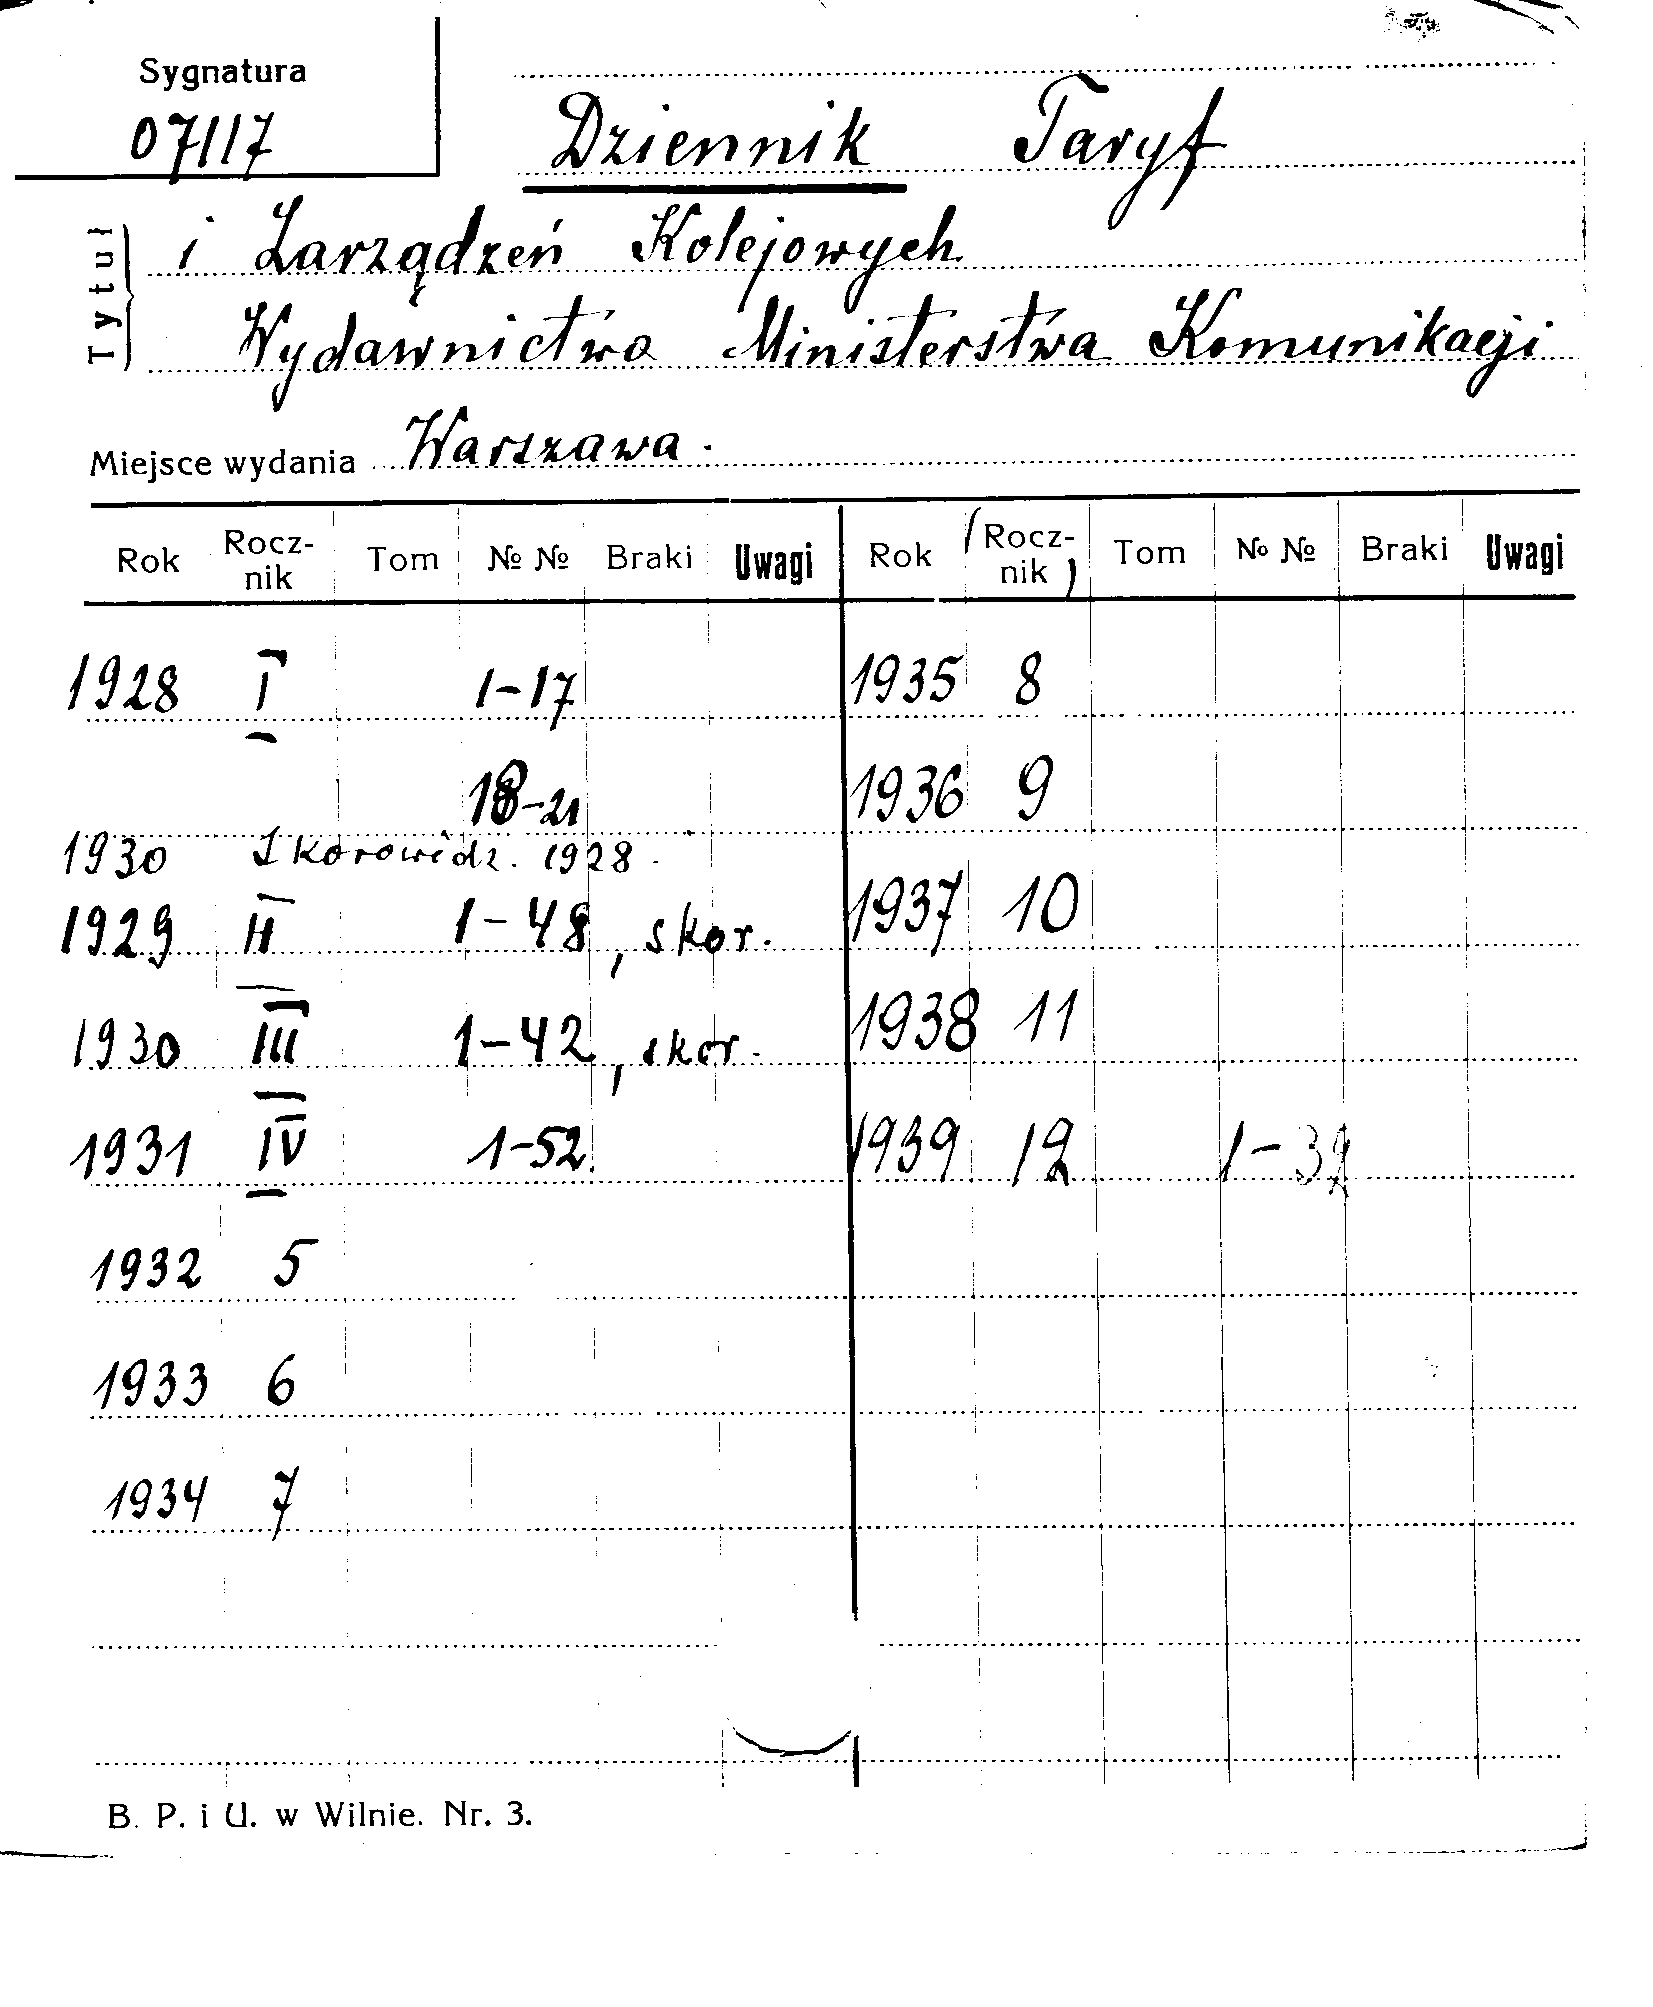 Sygnatura
07117
Dziennik Taryf
i Zarządzeń Kolejowych
Wydawnictwo Ministerstwa Komunikacji
Tytuł
Miejsce wydania Warszawa.
Rok Rocz-nik Tom № № Braki Uwagi Rok Rocz-nik Tom № № Braki Uwagi
1928 I 1-17 1935 8
18-21 1936 9
1930 Skorowidz. 1928.
1929 II 1-48, skor. 1937 10
1930 III 1-42, skor. 1938 11
1931 IV 1-52. 1939 12 1-32
1932 5
1933 6
1934 7
B. P. i U. w Wilnie. Nr. 3.